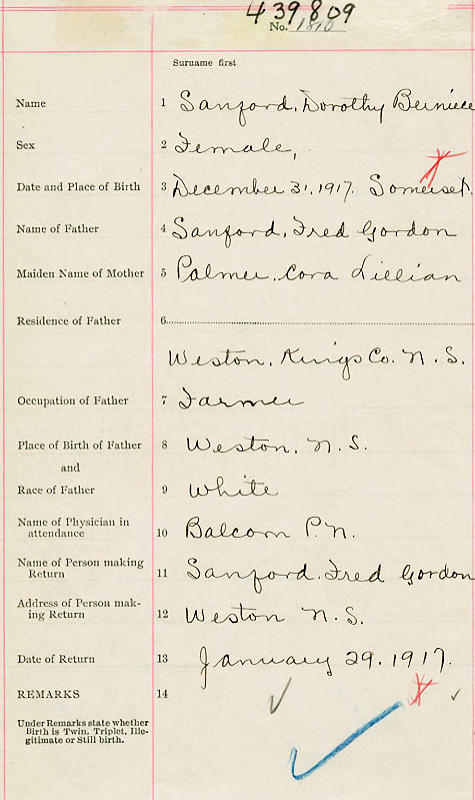 439809
No. 1810
Surname first
Name 1 Sanford, Dorothy Berniece
Sex 2 Female,
Date and Place of Birth 3 December 31, 1917. Somerset.
Name of Father 4 Sanford, Fred Gordon
Maiden Name of Mother 5 Palmer, Cora Lillian
Residence of Father 6
Weston, Kings Co. N. S.
Occupation of Father 7 Farmer
Place of Birth of Father 8 Weston, N. S.
and
Race of Father 9 White
Name of Physician in
attendance 10 Balcom P. N.
Name of Person making
Return 11 Sanford, Fred Gordon
Address of Person mak-
ing Return 12 Weston N. S.
Date of Return 13 January 29, 1917.
REMARKS 14
Under Remarks state whether
Birth is Twin, Triplet, Ille-
gitimate or Still birth.